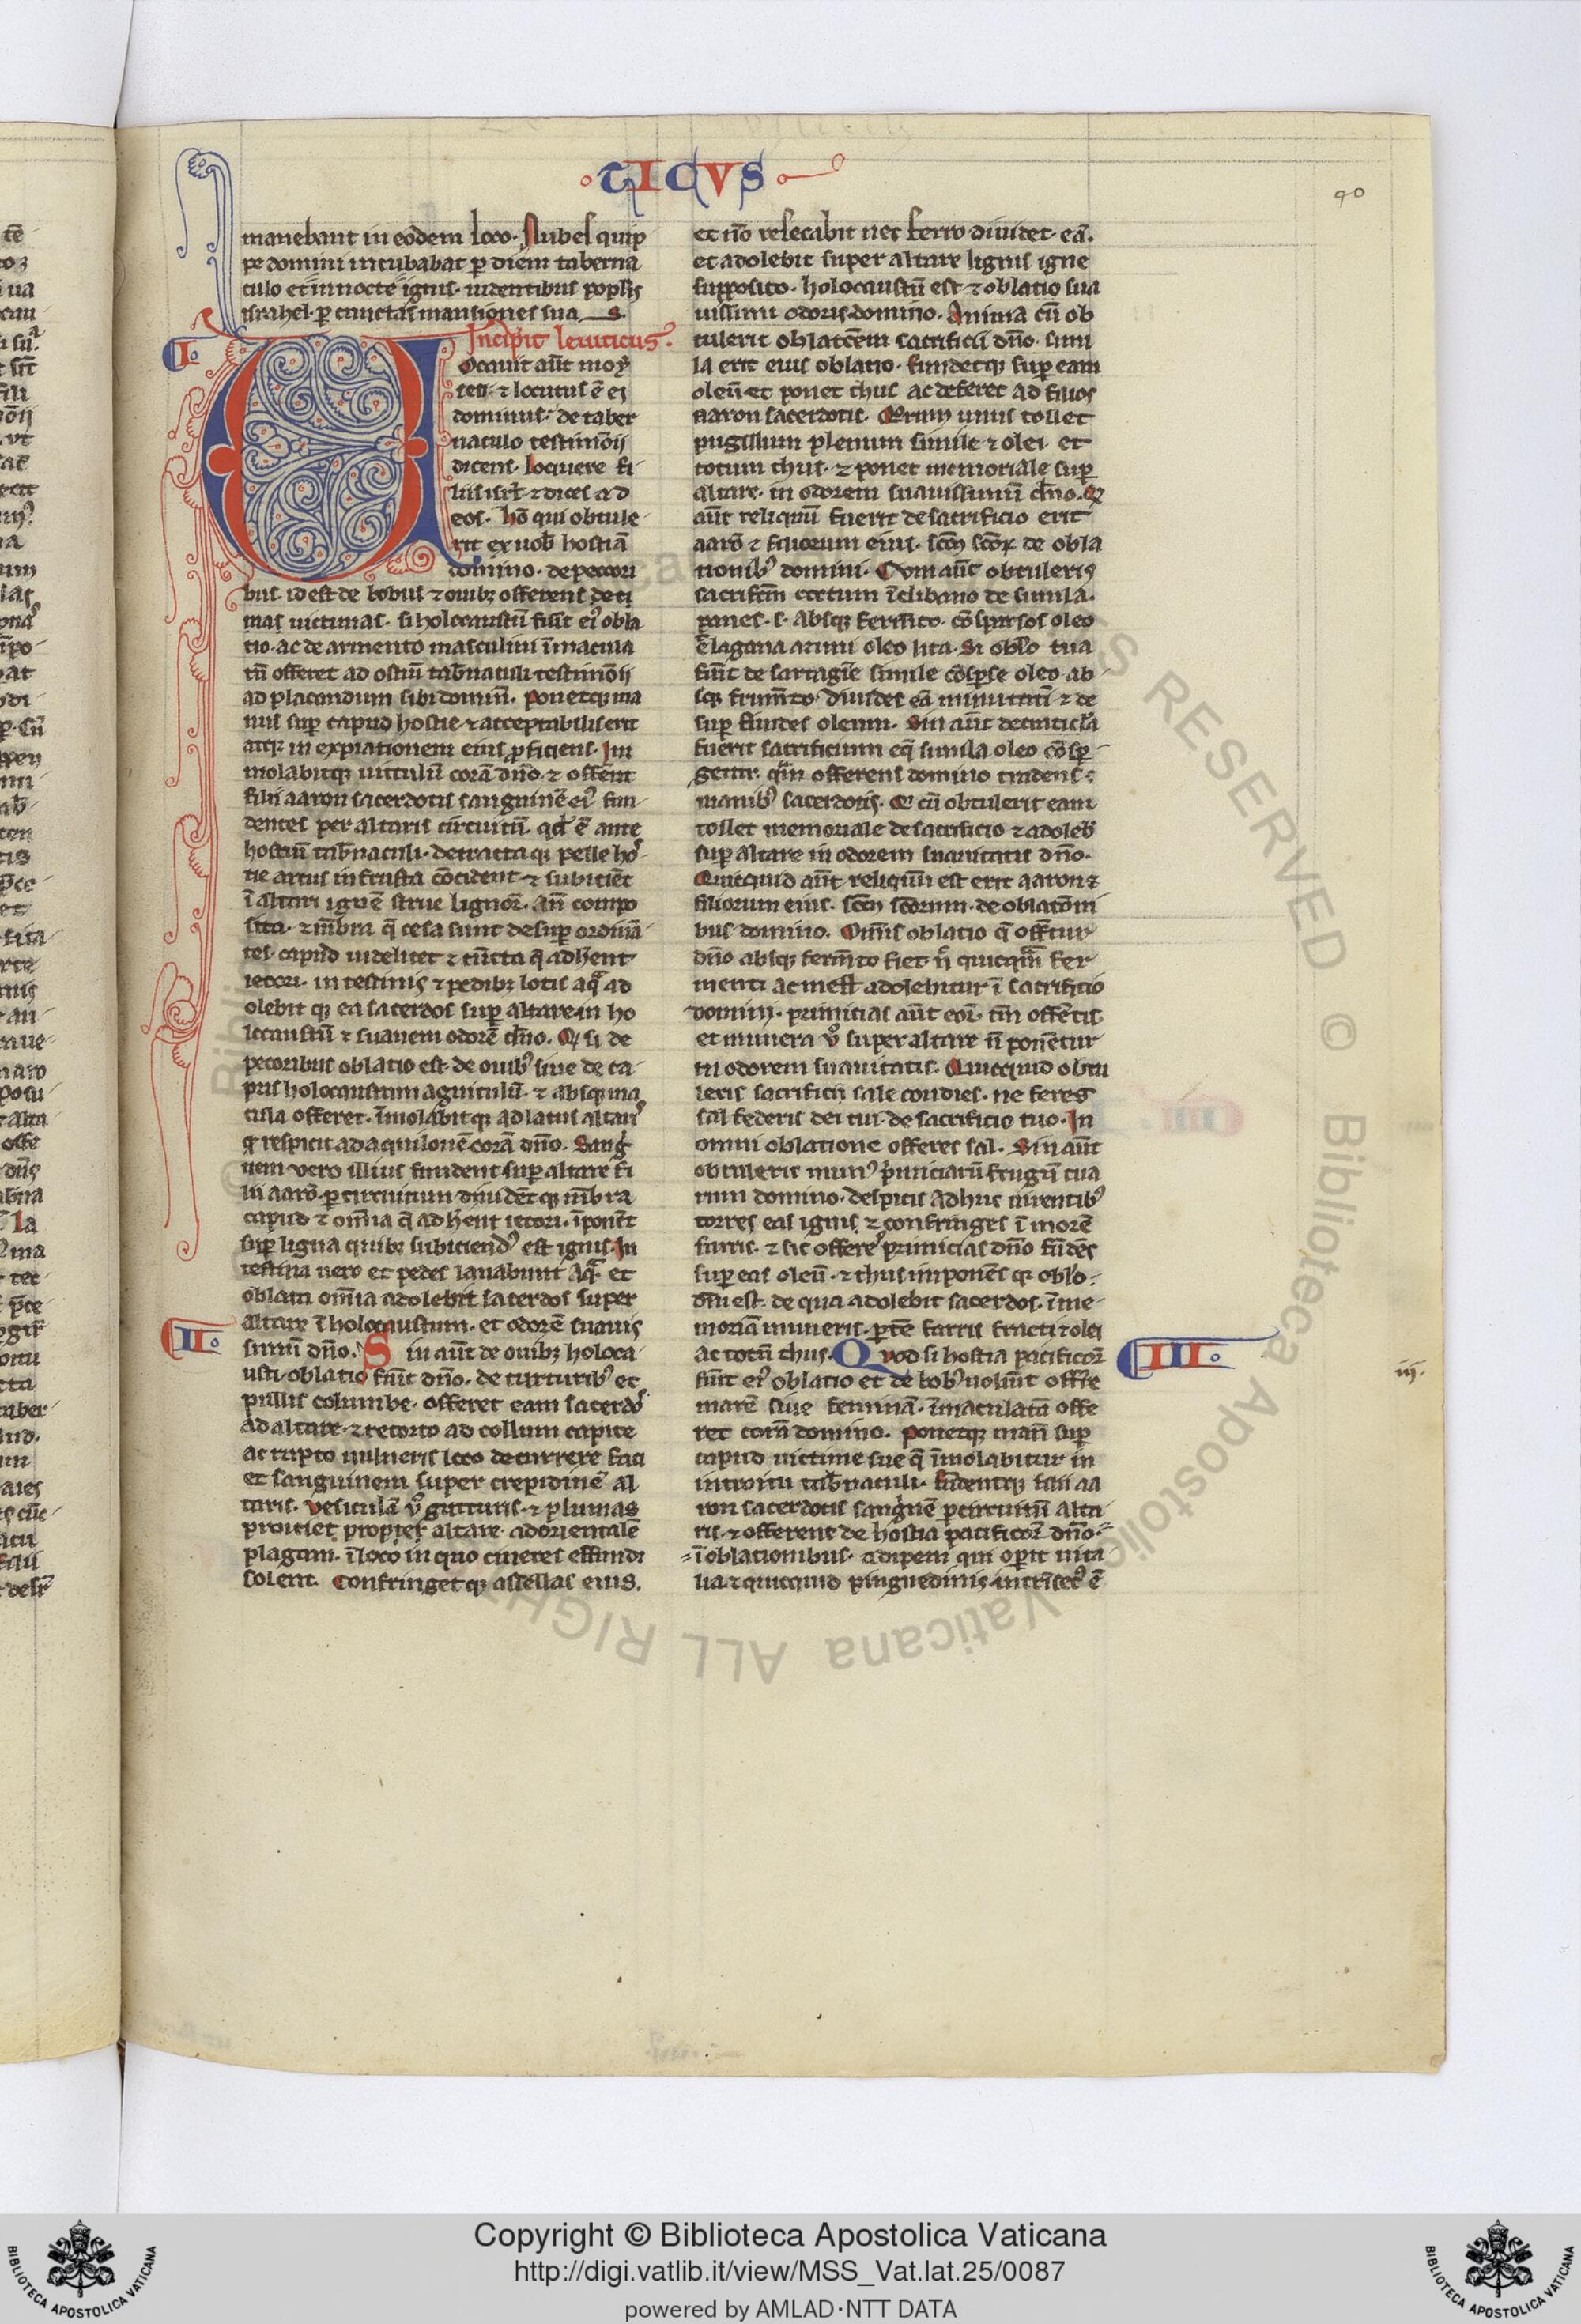 TICVS
90
manebant in eodem loco. Nubes quip
pe domini incubabat ꝑ diem taberna
culo et in nocte ignis. uidentibus poplis
israhel. ꝑ cunctas mansiones suas.
Incipit leuiticus.
I.
Vocauit aūt moy
sen. ⁊ locutus ē ei
dominus. de taber
naculo testimōij
dicens. loquere fi
liis isrł ⁊ dices ad
eos. hō qui obtule
rit ex uob̄ hostiā
domino. de pecori
bus. id est de bobus ⁊ ouibꝫ offerens uic
mas uictimas. si holocaustū fuīt ei᷒ obla
tio. ac de armento masculinū īmacula
tū offeret ad ostiū tab̄naculi testimōij
ad placandum sibi dominū. ponetqꝫ ma
nus suꝑ capud hostie ⁊ acceptabilis erit
atqꝫ in expiationem eius ꝓficiens. Im
molabitqꝫ uitulū corā dn̄o. ⁊ offerent
filii aaron sacerdotis sanguinē ei᷒ fun
dentes per altaris circuitū. qd̄ ē ante
hostiū tab̄naculi. detractaqꝫ pelle hos
tie artus in frusta cōcident ⁊ subicient
ī altari ignē strue lignoꝝ. ān compo
sita. ⁊ mēbra q̄ cesa sunt desuꝑ ordinā
tes. capud uidelicet ⁊ cūcta q̄ adhēnt
iecori. intestinis ⁊ pedibꝫ lotis aq̄ ad
olebit qꝫ ea sacerdos suꝑ altare in ho
locaustū ⁊ suauem odorē dn̄o. Qd̄ si de
pecoribus oblatio est. de ouib᷒ siue de ca
pris holocaustum agniculū. ⁊ absqꝫ ma
cula offeret. īmolabitqꝫ ad latus altaris
qd̄ respicit ad aquilonē corā dn̄o. Sang
nem vero illius fundent suꝑ altare fi
lii aarō. ꝑ circuitum. diuidēt qꝫ mēbra
capud ⁊ om̄ia q̄ adhēnt iecori. īponēt
suꝑ ligna quibꝫ subiciend᷒ est ignis. In
testina uero et pedes lauabunt aq̄. et
oblata om̄ia adolebit sacerdos super
altare ī holocaustum. et odorē suauis
II.
simū dn̄o. Sin aūt de auibꝫ holoca
usti oblatio fuīt dn̄o. de turturib᷒ et
pullis columbe. offeret eam sacerdos
ad altare. ⁊ retorto ad collum capite
ac rupto uulneris loco decurrere faci
et sanguinem super crepidinē al
taris. vesiculā v᷒ gutturis. ⁊ plumas
proiciet propter altare. ad orientalē
plagam. ī loco in quo cineres effundi
solent. Confringet qꝫ assellas eius.
et nō resecabit nec ferro diuidet. eā.
et adolebit super altare lignis igne
supposito. holocaustū est ⁊ oblatio sua
uissimi odoris domino. Anima cū ob
tulerit oblatōem sacrificii dn̄o. simi
la erit eius oblatio. fundetqꝫ suꝑ eam
oleū et ponet thus ac deferet ad filios
aaron sacerdotis. Quorum unus tollet
pugillum plenum simile ⁊ olei. et
totum thus. ⁊ ponet memoriale suꝑ
altare. in odorem suauissimū dn̄o. Qd̄
aūt reliquū fuerit de sacrificio erit
aarō ⁊ filiorum eius. scm̄ scōꝝ de obla
tionib᷒ domini. Cum aūt obtuleris
sacrificiū coctum ī clibano de simila.
panes. s. absqꝫ fermēto. cōspersos oleo
⁊ lagana azimi oleo lita. Si oblō tua
fuīt de sartagīe simile cōsp̄se oleo. ab
sqꝫ fermēto. diuides eā minutatī ⁊ de
suꝑ fundes oleum. Sin aūt de craticula
fuerit sacrificium eq̄ simila oleo cōsp̄
getur. quā offerens domino trades
manib᷒ sacerdotis. Qui cū obtulerit eam
tollet memoriale de sacrificio ⁊ adoleb̄
suꝑ altare in odorem suauitatis dn̄o.
Quicquid aūt reliquū est erit aaron ⁊
filiorum eius. scm̄ scōrum. de oblatōni
bus domino. Omnis oblatio q̄ offertur
dn̄o absqꝫ fermēto fiet. nec quicquā fer
menti ac mellis adolebitur ī sacrificio
domini. primicias aūt eoꝝ. tm̄ offeretis
et munera v᷒ super altare n̄ ponentur
in odorem suauitatis. Quicquid obtu
leris sacrificii sale condies. ne feres
sal federis dei tui. de sacrificio tuo. In
omni oblatione offeres sal. Sin aūt
obtuleris mun᷒ p̄miciarū frugū tua
rum domino. de spicis adhuc uirentib᷒
torres eas igni. ⁊ confringes ī morē
farris. ⁊ sic offeres primicias dn̄o fūdēs
suꝑ eas oleū. ⁊ thus imponēs qꝫ oblō
dn̄i est. de qua adolebit sacerdos. ī me
moriā muneris. ptē farris fracti ⁊ olei
ac totū thus. Quod si hostia pacificoꝝ
III.
iij.
fuīt ei᷒ oblatio et de bob᷒ uoluīt offre
marē siue feminā. īmaculatā offe
ret corā domino. ponetqꝫ manū suꝑ
capud uictime sue q̄ īmolabitur in
introitu tab̄naculi. fūdentqꝫ filii aa
ron sacerdotis sanguinē ꝑ circuitū alta
ris. ⁊ offerent de hostia pacificoꝝ dn̄o.
ī oblationibus. adipem qui operit uita
lia. ⁊ quicquid pinguedinis intrīsec᷒ ē
Copyright © Biblioteca Apostolica Vaticana
http://digi.vatlib.it/view/MSS_Vat.lat.25/0087
powered by AMLAD·NTT DATA